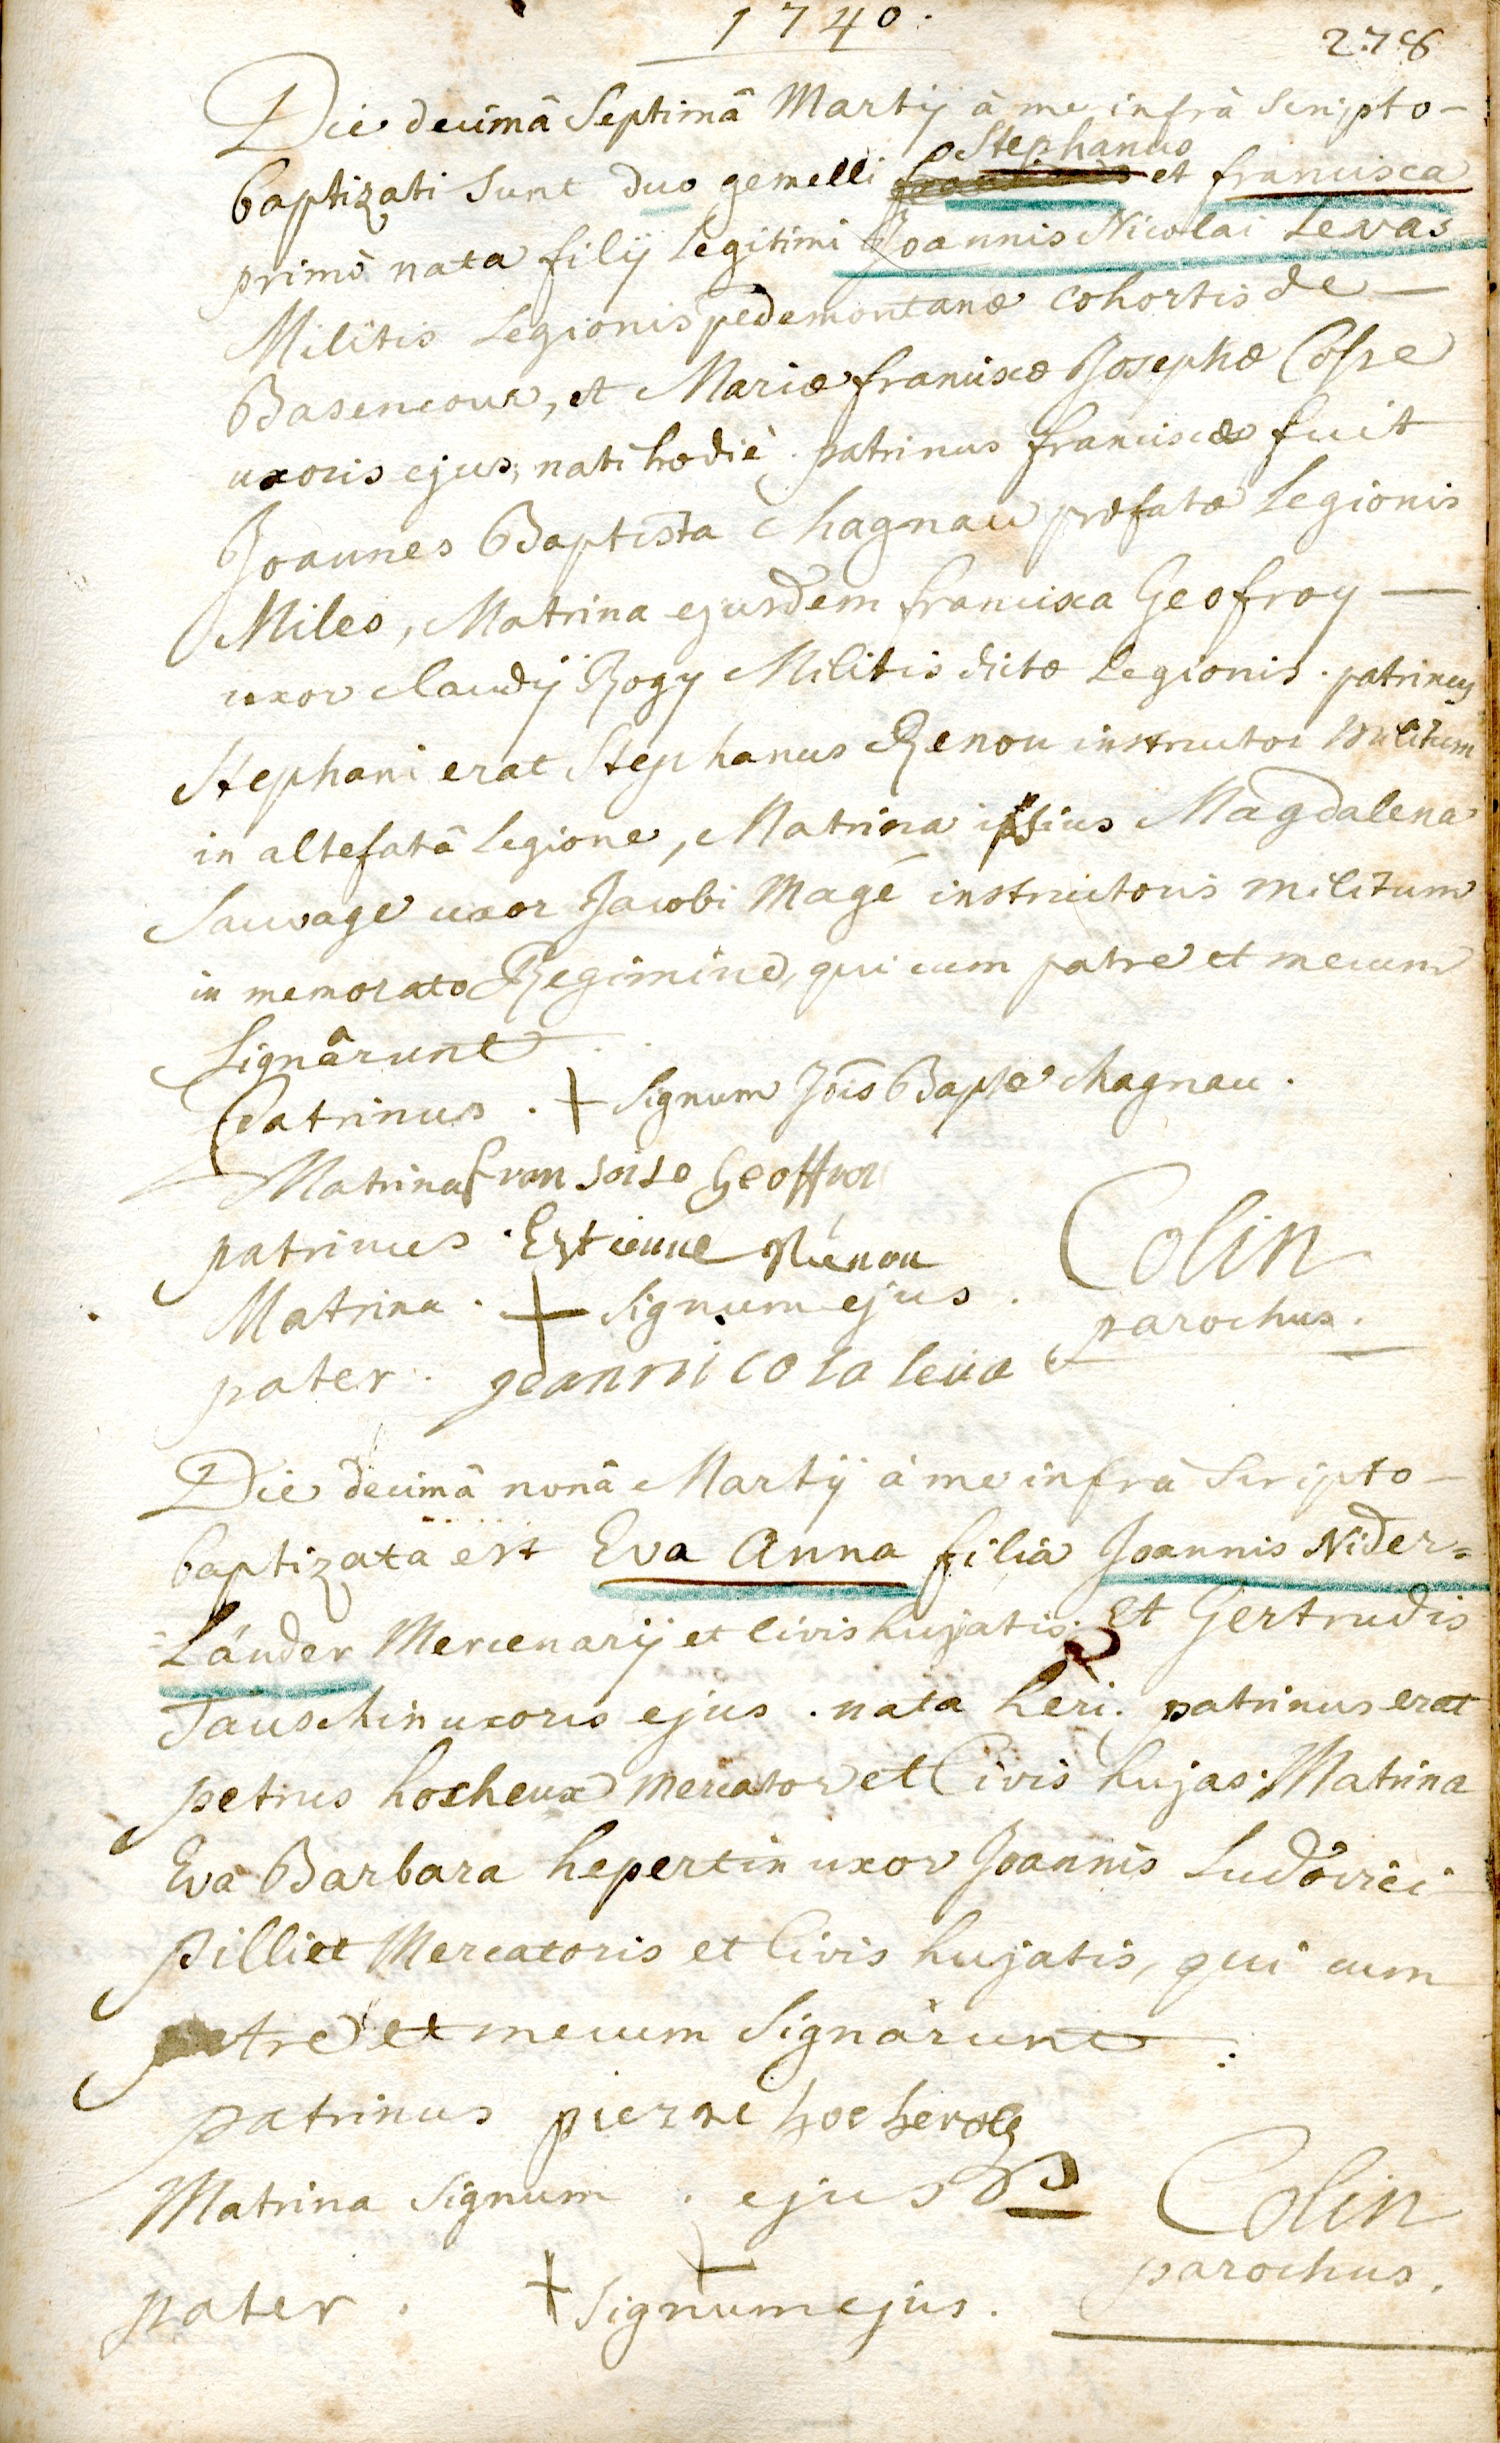 1740.
278
Die decimâ Septimâ Martij à me infrà Scripto-
Stephanus
baptizati Sunt duo gemelli et francisca
primò nata filij Legitimi Joannis Nicolai Levas
Militis Legionis pedemontanæ cohortis de —
Basencour, et Mariæ franciscæ Josephæ Cosse
uxoris ejus, nati hodiè. patrinus franciscæ fuit
Joannes Baptista Chagnau præfatæ Legionis
Miles, Matrina ejusdem francisca Geofroy —
uxor claudij Rogy Militis dictæ Legionis. patrinus
Stephani erat Stephanus Renou instructor Militum
in altefatâ Legione, Matrina ipsius Magdalena
Sauvage uxor Jacobi Magé instructoris militum
in memorato Regimine, qui cum patre et mecum
Signârunt
Patrinus. + Signum Jois Baptæ chagnau.
Matrina fransoise Geoffroi
patrinus. Estienne Rienou
Matrina. + Signum ejus.
Colin
parochus.
pater. jeannicola leva
Die decimâ nonâ Martij à me infrà Scripto-
baptizata est Eva Anna filia Joannis Nider=
=Länder Mercenarij et Civis hujatis, et Gertrudis
Tauschin uxoris ejus. nata heri. patrinus erat
petrus hocheux mercator et Civis hujas. Matrina
Eva Barbara hepertin uxor Joannis Ludovici
Pilliet Mercatoris et Civis hujatis, qui cum
patre et mecum Signârunt :
patrinus pierre
Matrina Signum . ejus
+
Colin
parochus.
pater. + Signum ejus.